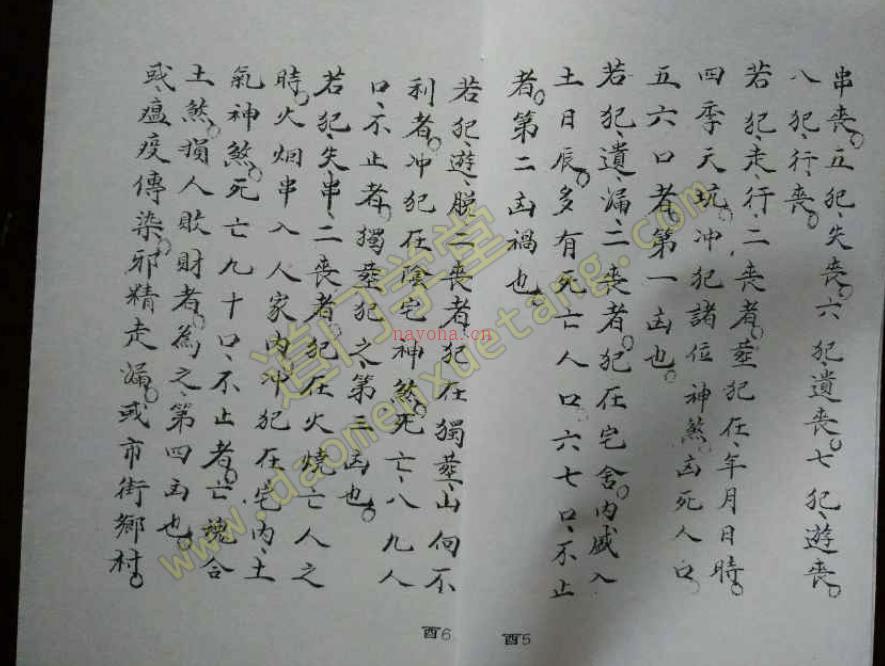 串喪。五犯、失喪。六犯、遺喪。七犯、遊喪。
八犯、行喪。
若犯、走行、二喪者。塟犯在、年月日時。
四季天坑。冲犯諸位神煞。凶死人口、
五六口者。第一凶也。
若犯、遺漏、二喪者。犯在宅舍。内感入
土日辰。多有死亡人口。六七口、不止
者。第二凶禍也。
若犯、遊、脱、二喪者。犯在獨塟、山向不
利者。冲犯在陰宅神煞。死亡、八九人
口、不止者。獨塟犯之、第三凶也。
若犯、失串、二喪者。犯在火燒亡人之
時。火烟串入人家内。冲犯在宅内、土
氣神煞。死亡九十口、不止者。亡魂合
土煞。損人敗財者。為之、第四凶也。
或、瘟疫傳染。邪精走漏。或市街鄉村。
酉6
酉5
道门学堂
www.daomenxuetang.com
navoha.cn